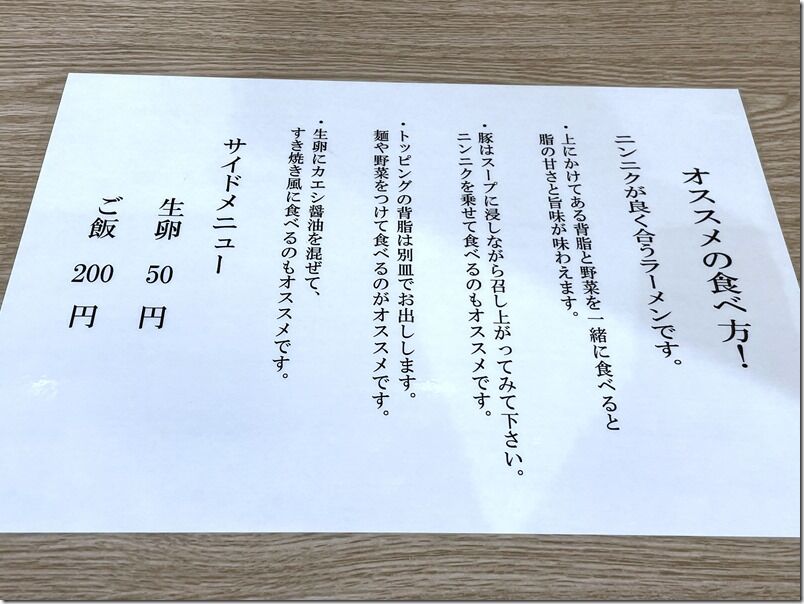 オススメの食べ方！
ニンニクが良く合うラーメンです。
・上にかけてある背脂と野菜を一緒に食べると
脂の甘さと旨味が味わえます。
・豚はスープに浸しながら召し上がってみて下さい。
ニンニクを乗せて食べるのもオススメです。
・トッピングの背脂は別皿でお出しします。
麺や野菜をつけて食べるのがオススメです。
・生卵にカエシ醤油を混ぜて、
すき焼き風に食べるのもオススメです。
サイドメニュー
生卵 50 円
ご飯 200 円